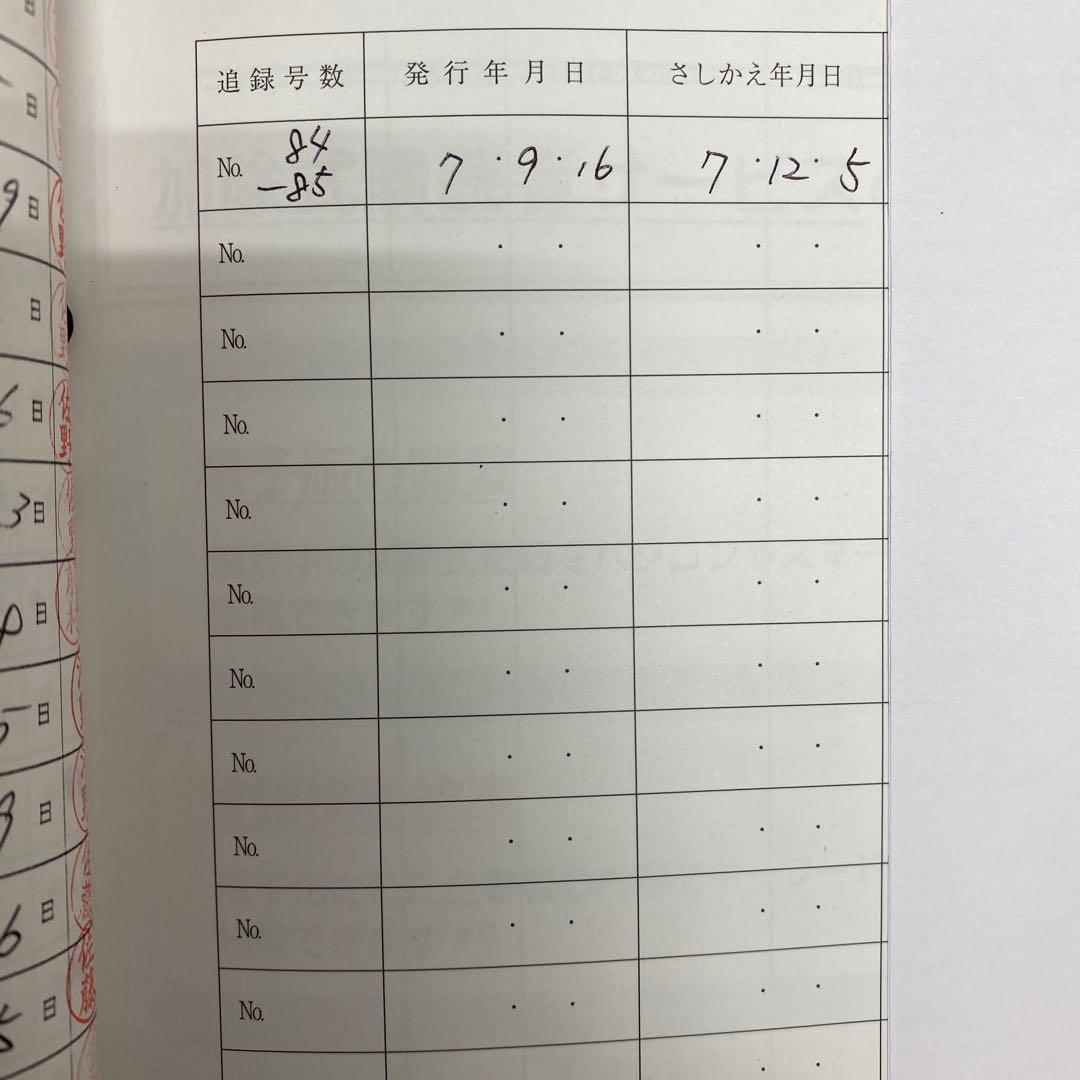 追録号数 発行年月日 さしかえ年月日
No. 84
-85 7・9・16 7・12・5
No. ・ ・ ・ ・
No. ・ ・ ・ ・
No. ・ ・ ・ ・
No. ・ ・ ・ ・
No. ・ ・ ・ ・
No. ・ ・ ・ ・
No. ・ ・ ・ ・
No. ・ ・ ・ ・
No. ・ ・ ・ ・
No. ・ ・ ・ ・
日
日
9日
日
6日
3日
日
5日
9日
6日
日